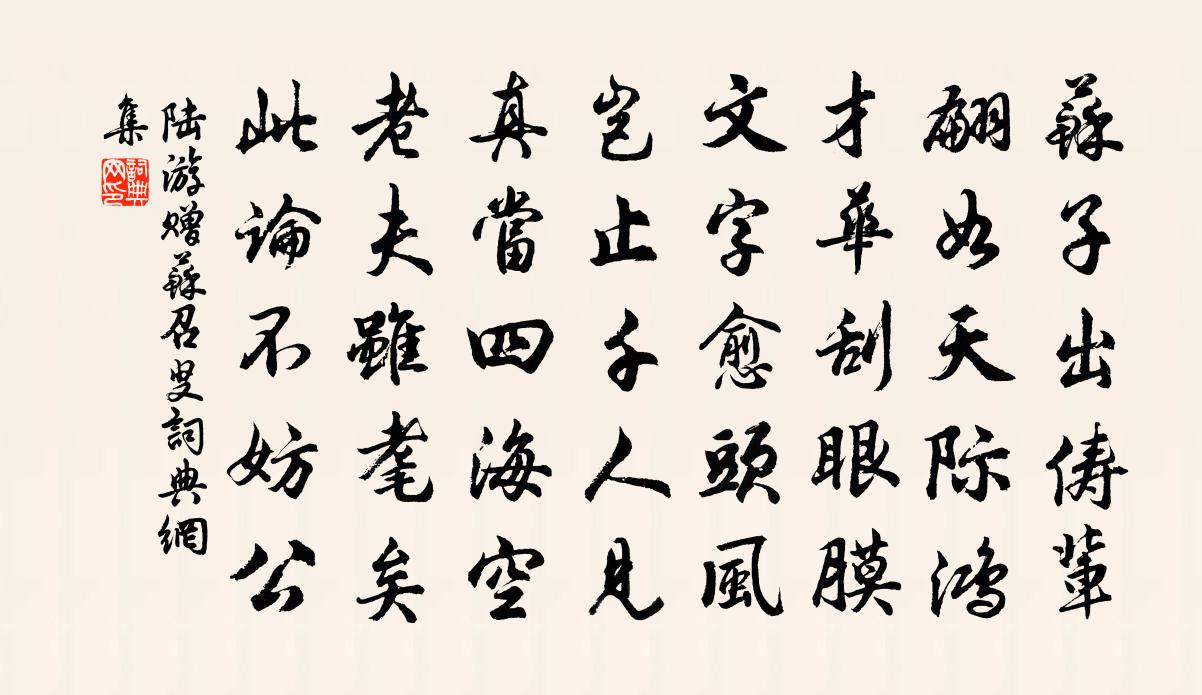 蘇子出儔輩
翩如天际鴻
才華刮眼膜
文字愈頭風
豈止千人見
真當四海空
老夫雖耄矣
此論不妨公
陆游赠蘇召叟詞典網
集
詞典網印